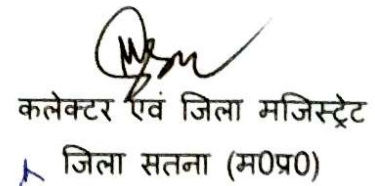 कलेक्टर एवं जिला मजिस्ट्रेट
जिला सतना (म0प्र0)